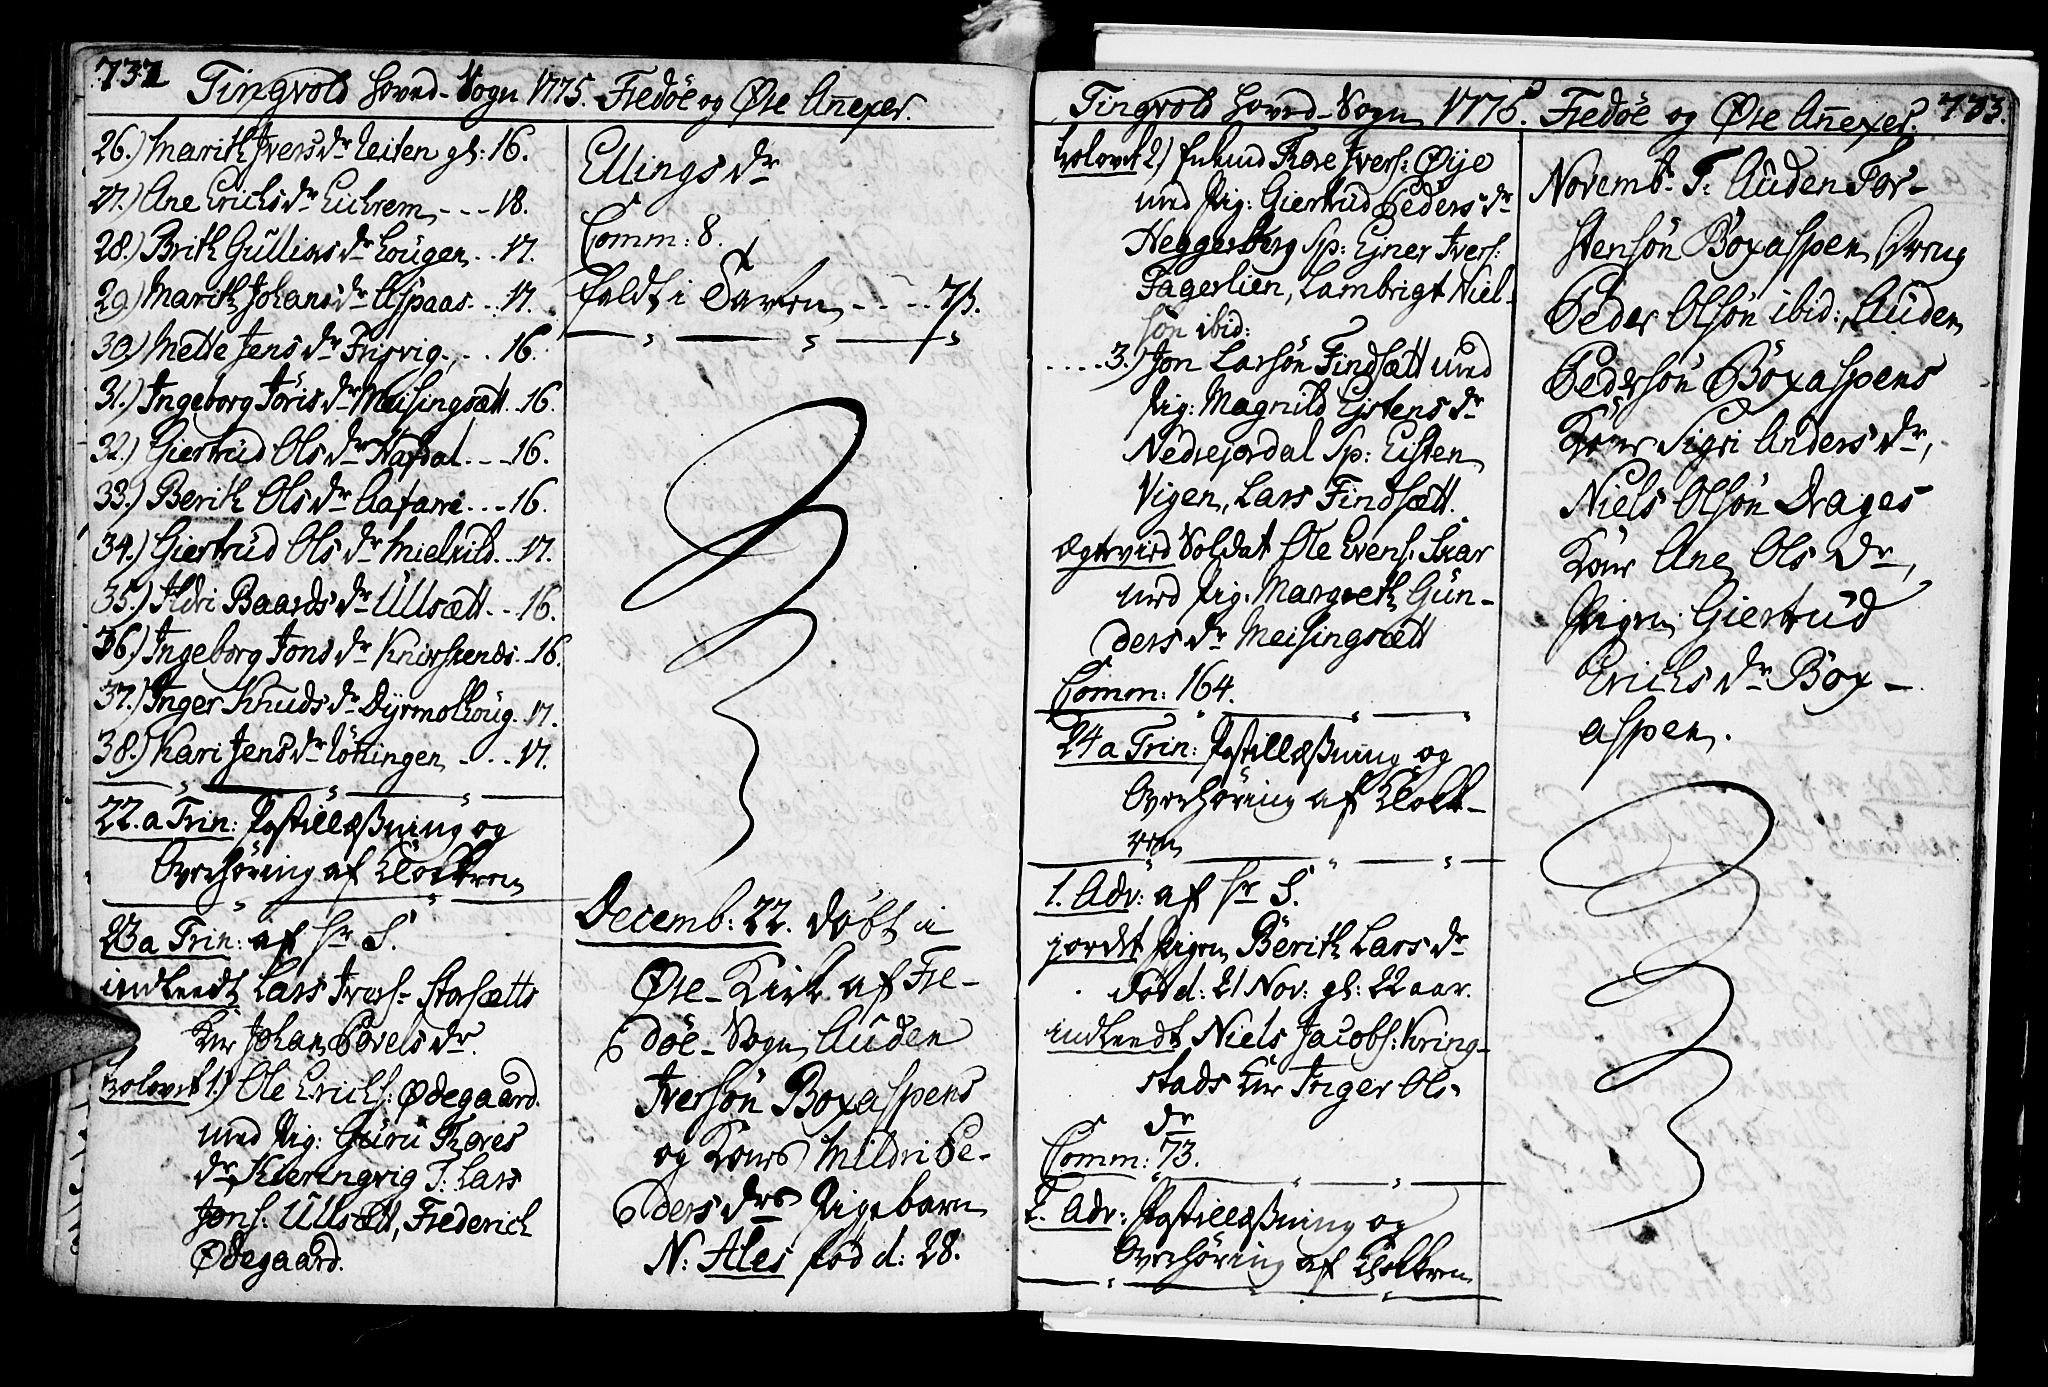 732
Tingvold Hoved-Sogn 1775. Fredöe og Øre Anexer.
26.) Marith Ivers dr Leiten gl: 16.
27.) Ane Erichs dr Eichrem - - - 18.
28.) Brith Gulliks dr Hougen - - 17.
29.) Marith Johans dr Aspaas - - 17.
30.) Mette Jens dr Frisvig - - 16.
31.) Ingeborg Joris dr Meisingsætt - 16.
32.) Giertrud Ols dr Hafdal - - - 16.
33.) Berith Ols dr Aafarne - - - 16.
34.) Giertrud Ols dr Mielkild - - 17.
35.) Ildri Baards dr Ullsætt - - 16.
36.) Ingeborg Jons dr - 16.
37.) Inger Knuds dr Dyrmolhoug - 17.
38.) Kari Jens dr Höningen - - - 17.
22. a Trin: Postillæsning og
Overhöring af Klockeren
23 a Trin: af Hr S.
indleedt Lars Ivers: Storsætts
Kir Johan Povels dr
trolovet 1.) Ole Erichs: Ødegaard
med Pig: Guru Thores
dr Kieringvig F: Lars
Jons: Ullsætt, Frederich
Ødegaard.
Ellings dr
Comm: 8.
faldt i Taxten - - - -
Decemb: 22. döbt i
Øre-Kirk af Fre-
döe-Sogn Auden
Iversön Boxaspens
og Kones Mildri Pe-
ders drs Pigebarn
N: Ales föd d: 28.
Tingvold Hoved-Sogn 1775. Fredöe og Øre Anexer. 733.
trolovet 2) Enkemd Thore Ivers: Øije
med Pig: Giertrud Peders dr
Heggerberg Sp: Ejner Ivers:
Fagerlien, Lambrigt Niel-
sön ibid:
- - - - 3.) Jon Larsön Findsætt med
Pig: Magnild Ejstens dr
Nedrejordal Sp: Eisten
Vigen, Lars Findsætt.
Ægteviid Soldat Ole Evens: Skar
med Pig: Margreth Gun-
ders dr Meisingsætt
Comm: 164.
24 a Trin: Postillæsning og
Overhöring af Klock-
eren
1. Adv: af Hr S.
jordet Pigen Berith Lars dr
död d: 21 Nov: gl: 22 aar.
indleedt Niels Jacobs: Kring-
stads Kir Inger Ols-
dr
Comm: 73.
2. Adv: Postillæsning og
Overhöring af Klockeren
Novembr F: Auden Tor-
stensön Boxaspen, Dreng
Peder Olsön ibid:, Auden
Pedersön Boxaspens
Kone Sigri Anders dr,
Niels Olsön Drages
Kone Ane Ols dr,
Pigen Giertrud
Erichs dr Box-
aspen.